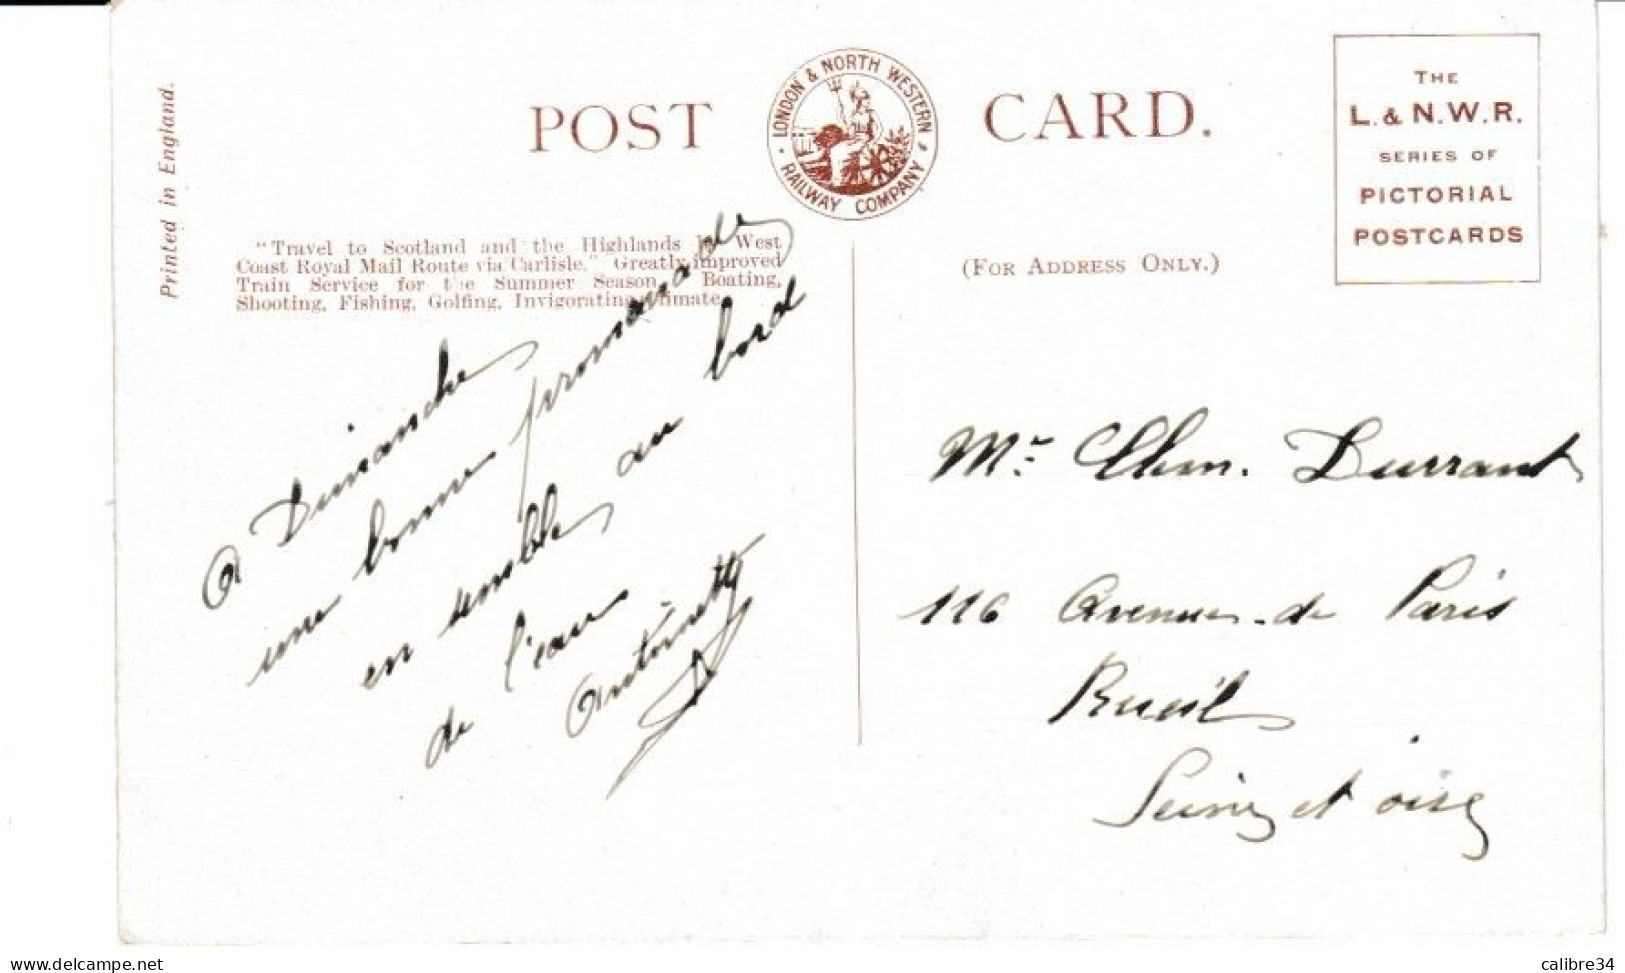 Printed in England.
POST CARD.
LONDON & NORTH WESTERN
RAILWAY COMPANY
THE
L. & N.W.R.
SERIES OF
PICTORIAL
POSTCARDS
"Travel to Scotland and the Highlands by West
Coast Royal Mail Route via Carlisle." Greatly improved
Train Service for the Summer Season. Boating,
Shooting, Fishing, Golfing, Invigorating Climate.
(FOR ADDRESS ONLY.)
A Dimanche
une bonne promenade
en semble au bord
de l'eau
Antoinette
Mr Clem. Durrant
116 Avenue de Paris
Rueil
Seine et oise
delcampe.net
calibre34